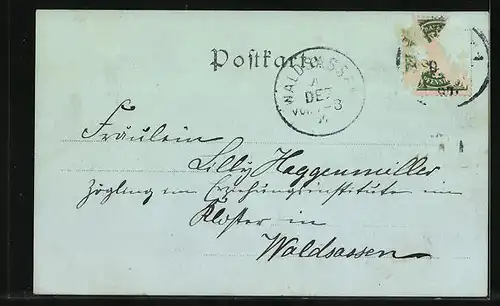 Postkarte
WALDSASSEN
DEZ
VOR. 7-8
Fräulein
Lilly Haggenmiller
Zögling im Erziehungsinstitute im
Kloster in
Waldsassen